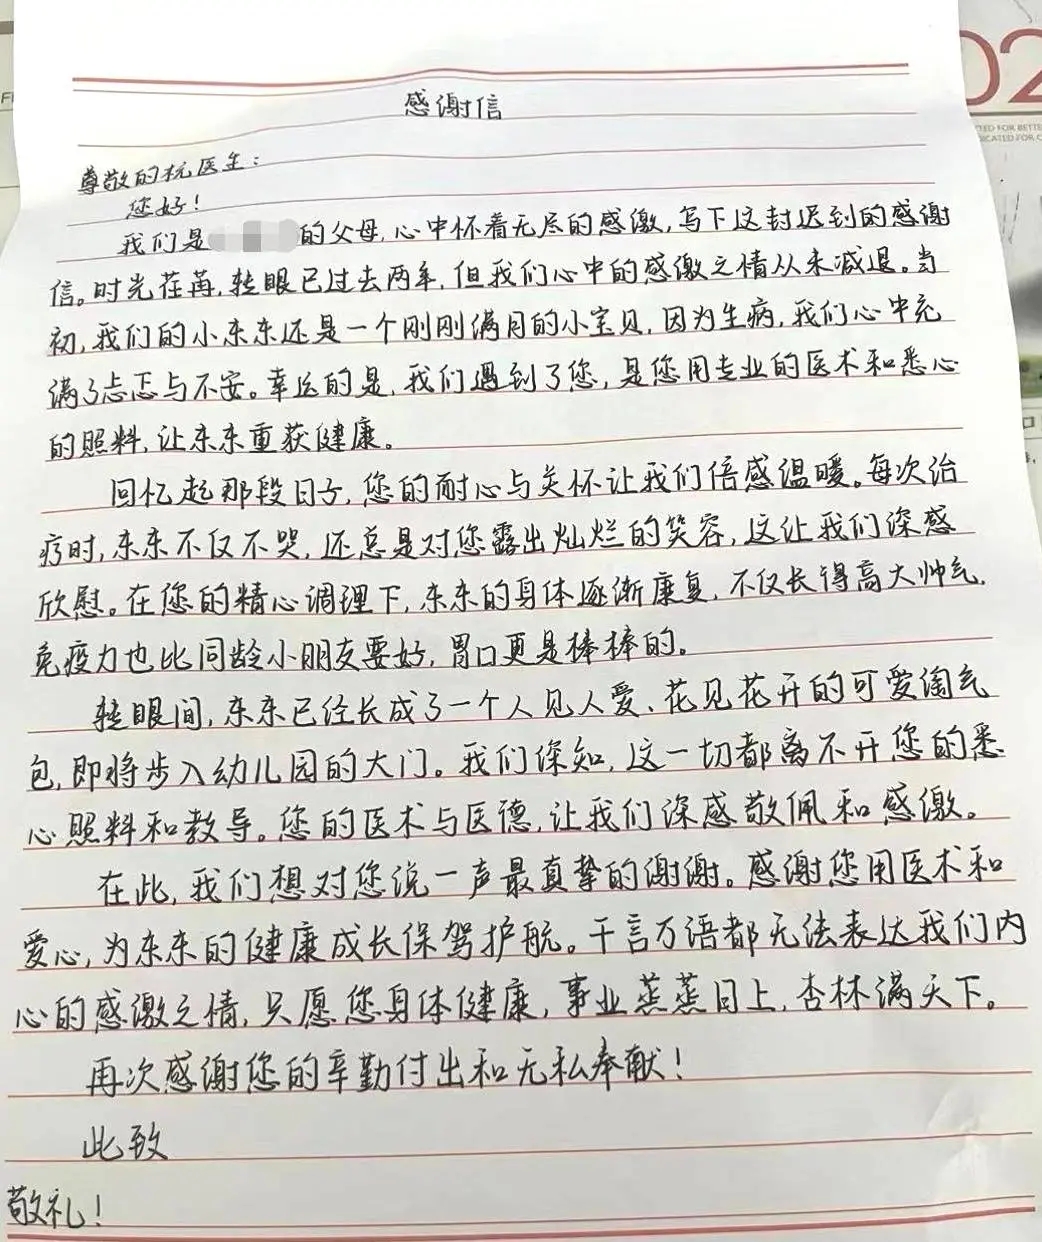 感谢信
尊敬的杭医生：
您好！
我们是的父母，心中怀着无尽的感激，写下这封迟到的感谢
信。时光荏苒，转眼已过去两年，但我们心中的感激之情从未减退。当
初，我们的小东东还是一个刚刚满月的小宝贝，因为生病，我们心中充
满了忐忑与不安。幸运的是，我们遇到了您，是您用专业的医术和悉心
的照料，让东东重获健康。
回忆起那段日子，您的耐心与关怀让我们倍感温暖。每次治
疗时，东东不仅不哭，还总是对您露出灿烂的笑容，这让我们深感
欣慰。在您的精心调理下，东东的身体逐渐康复，不仅长得高大帅气，
免疫力也比同龄小朋友要好，胃口更是棒棒的。
转眼间，东东已经长成了一个人见人爱、花见花开的可爱淘气
包，即将步入幼儿园的大门。我们深知，这一切都离不开您的悉
心照料和教导。您的医术与医德，让我们深感敬佩和感激。
在此，我们想对您说一声最真挚的谢谢。感谢您用医术和
爱心，为东东的健康成长保驾护航。千言万语都无法表达我们内
心的感激之情，只愿您身体健康，事业蒸蒸日上，杏林满天下。
再次感谢您的辛勤付出和无私奉献！
此致
敬礼！
02